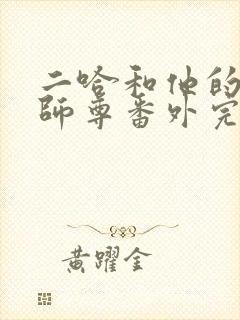 二哈和他的
師尊番外完
黃躍金